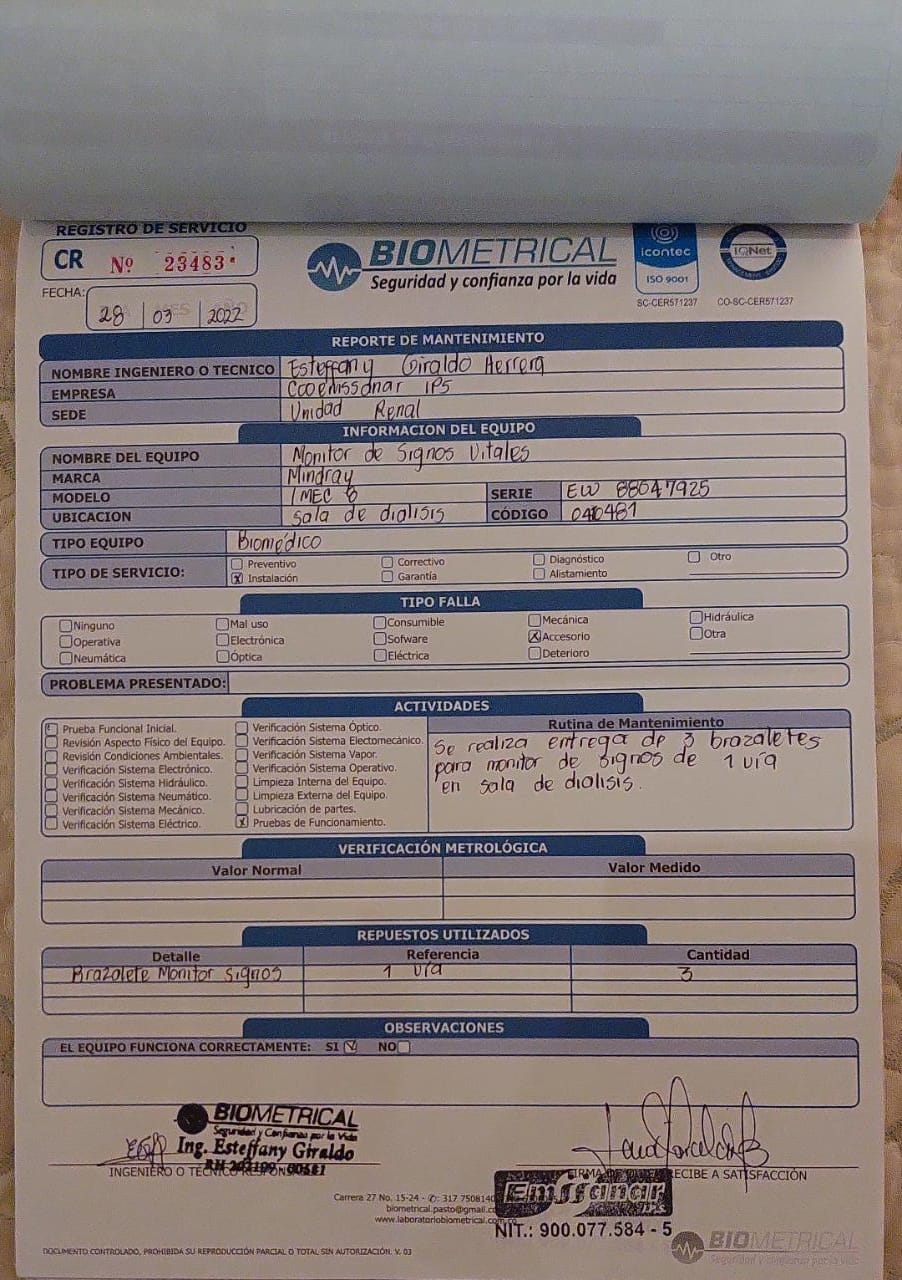 REGISTRO DE SERVICIO
CR Nº 23483
BIOMETRICAL
Seguridad y confianza por la vida
icontec
ISO 9001
SC-CER571237
IQNet
CO-SC-CER571237
FECHA: 28 03 2022
REPORTE DE MANTENIMIENTO
NOMBRE INGENIERO O TECNICO Esteffany Giraldo Herrera
EMPRESA Cooemssanar IPS
SEDE Unidad Renal
INFORMACION DEL EQUIPO
NOMBRE DEL EQUIPO Monitor de Signos Vitales
MARCA Mindray
MODELO IMEC 8 SERIE EW 88047925
UBICACION Sala de dialisis CÓDIGO 040481
TIPO EQUIPO Biomédico
TIPO DE SERVICIO:
Preventivo Correctivo Diagnóstico Otro
X Instalación Garantía Alistamiento
TIPO FALLA
Ninguno Mal uso Consumible Mecánica Hidráulica
Operativa Electrónica Sofware X Accesorio Otra
Neumática Óptica Eléctrica Deterioro
PROBLEMA PRESENTADO:
ACTIVIDADES
Prueba Funcional Inicial.
Revisión Aspecto Físico del Equipo.
Revisión Condiciones Ambientales.
Verificación Sistema Electrónico.
Verificación Sistema Hidráulico.
Verificación Sistema Neumático.
Verificación Sistema Mecánico.
Verificación Sistema Eléctrico.
Verificación Sistema Óptico.
Verificación Sistema Electomecánico.
Verificación Sistema Vapor.
Verificación Sistema Operativo.
Limpieza Interna del Equipo.
Limpieza Externa del Equipo.
Lubricación de partes.
X Pruebas de Funcionamiento.
Rutina de Mantenimiento
Se realiza entrega de 3 brazaletes
para monitor de signos de 1 vía
en sala de dialisis.
VERIFICACIÓN METROLÓGICA
Valor Normal Valor Medido
REPUESTOS UTILIZADOS
Detalle Referencia Cantidad
Brazalete Monitor signos 1 vía 3
OBSERVACIONES
EL EQUIPO FUNCIONA CORRECTAMENTE: SI X NO
BIOMETRICAL
Seguridad y Confianza por la Vida
Ing. Esteffany Giraldo
INGENIERO O TÉCNICO
FIRMA DE RECIBE A SATISFACCIÓN
Emssanar
NIT.: 900.077.584 - 5
Carrera 27 No. 15-24 - 317 7508140
biometrical.pasto@gmail.co
www.laboratoriobiometrical.com.co
BIOMETRICAL
Seguridad y confianza por la vida
DOCUMENTO CONTROLADO, PROHIBIDA SU REPRODUCCIÓN PARCIAL O TOTAL SIN AUTORIZACIÓN. V. 03